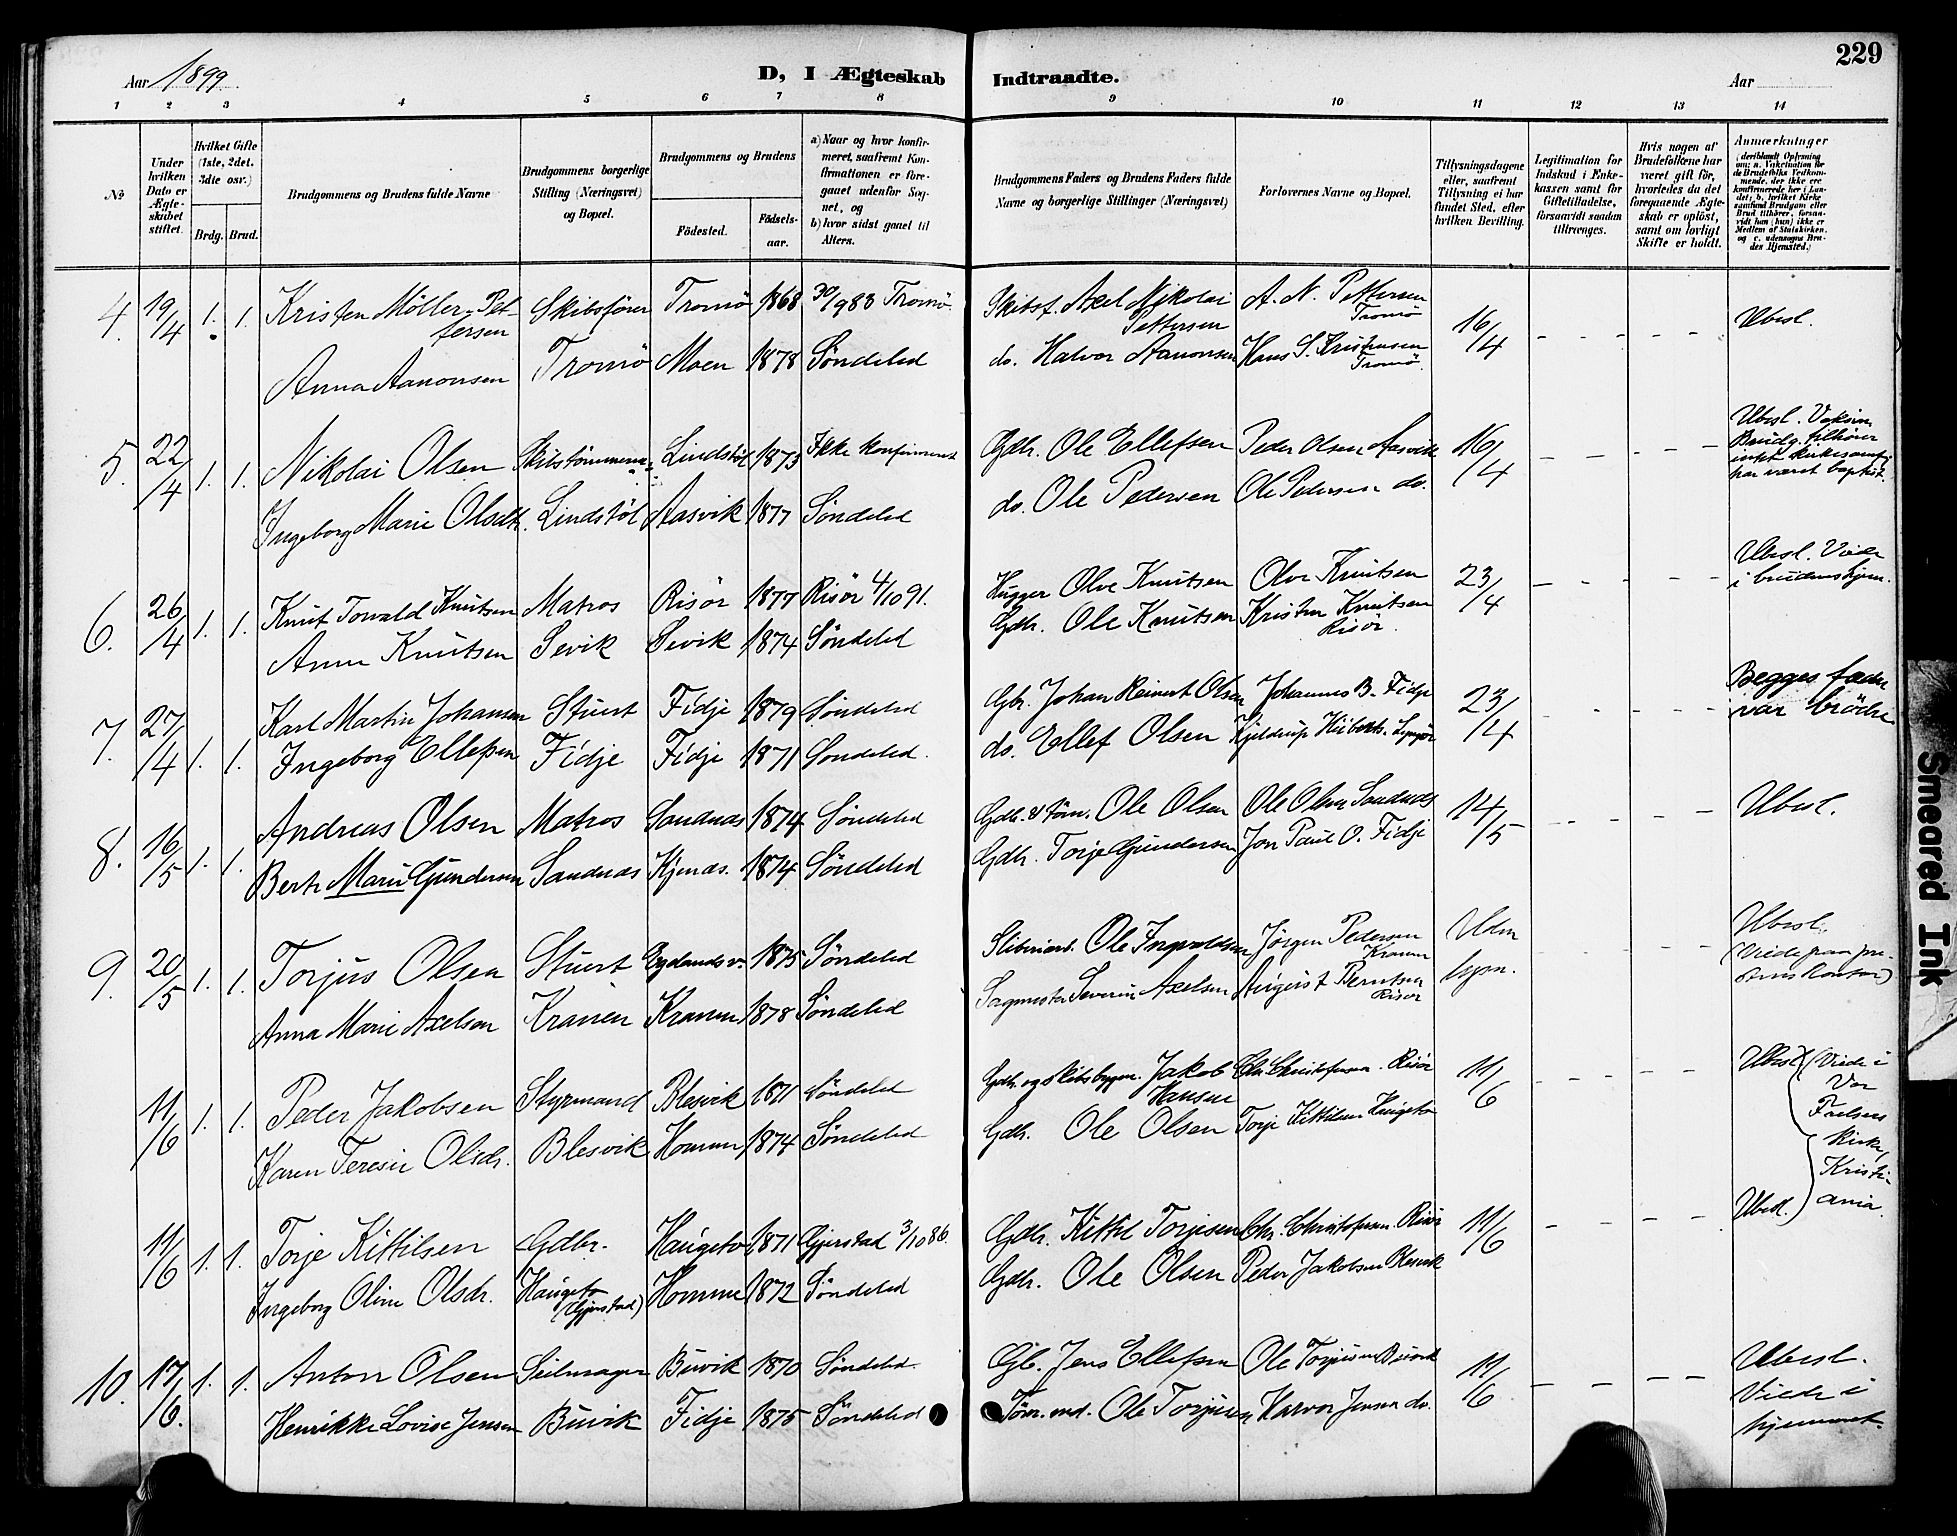 229
Aar 1899.
D, I Ægteskab Indtraadte.
Aar
1 2 3 4 5 6 7 8 9 10 11 12 13 14
No
Under hvilken Dato er Ægteskabet stiftet.
Hvilket Gifte (1ste, 2det. 3die osv.)
Brdg. Brud.
Brudgommens og Brudens fulde Navne
Brudgommens borgerlige Stilling (Næringsvei) og Bopæl.
Brudgommens og Brudens
Födested.
Födsels-aar.
a) Naar og hvor konfirmeret, saafremt Konfirmationen er foregaaet udenfor Sognet, og b) hvor sidst gaaet til Alters.
Brudgommens Faders og Brudens Faders fulde Navne og borgerlige Stillinger (Næringsvei)
Forlovernes Navne og Bopæl.
Tillysningsdagene eller, saafremt Tillysning ei har fundet Sted, efter hvilken Bevilling.
Legitimation for Indskud i Enkekassen samt for Giftetilladelse, forsaavidt saadan tiltrænges.
Hvis nogen af Brudefolkene har været gift för, hvorledes da det foregaaende Ægteskab er oplöst, samt om lovligt Skifte er holdt.
Anmærkninger
4. 19/4 1. 1. Kristen Möller-Pettersen Skibsförer Tromö 1868 30/9 83 Tromö. Skibsf. Axel Nikolai Pettersen A. N. Pettersen Tromö 16/4 - - - - Ubesl.
Anna Aanonsen Tromö Moen 1878 Söndeled do. Halvor Aanonsen Hans S. Kristensen Tromö.
5. 22/4 1. 1. Nikolai Olsen Lindstöl 1873 Ikke konfirmeret Gdbr. Ole Ellefsen Peder Olsen Aasvik 16/4 - - - - Ubesl. Brudg. tilhører intet kirkesamf. har været baptist.
Ingeborg Marie Olsdt. Lindstöl Aasvik 1877 Söndeled do. Ole Pedersen Ole Pedersen do.
6. 26/4 1. 1. Knut Torvald Knutsen Matros Risör 1877 Risör 4/10 91. Hugger Olve Knutsen Olve Knutsen 23/4 - - - - Ubesl. Viede i brudens hjem.
Anne Knutsen Sevik Sevik 1874 Söndeled Gdbr. Ole Knutsen Kristen Knutsen Risör.
7. 27/4 1. 1. Karl Martin Johansen Stuert Fidje 1879 Söndeled Gbr. Johan Reinert Olsen Johannes B. Fidje 23/4 - - - - Begges fædre var brödre
Ingeborg Ellefsen Fidje Fidje 1871 Söndeled. do. Ellef Olsen
8. 16/5 1. 1. Andreas Olsen Matros Sandnas 1874 Söndeled Gdb. & töm. Ole Olsen Ole Olsen Sandnas 14/5 - - - - Ubesl.
Berte Marie Gundersen Sandnas Kjenas. 1874 Söndeled Gdbr. Torje Gundersen Jon Paul O. Fidje
9. 20/5 1. 1. Torjus Olsen Stuert 1875 Söndeled Sliberiarb. Ole Ingvaldsen Jörgen Pedersen Kranen Uden lysn. - - - Ubesl. (Viede paa prestens kontor)
Anna Marie Axelsen Kranen Kranen 1878 Söndeled Sagmester Severin Axelsen August Berntsen Risör
11/6 1. 1. Peder Jakobsen Styrmand Blesvik 1871 Söndeled Gdbr. og skibsbygm. Jakob Hansen Chr. Christophersen. Risör 11/6 - - - - Ubesl. (Viede i Vor Frelsers kirke, Kristiania.
Karen Teresie Olsdr. Blesvik Homme 1874 Söndeled Gdbr. Ole Olsen Torje Kittilsen Haugeto
11/6 1. 1. Torje Kittilsen Gdbr. Haugeto 1871 Gjerstad 3/10 86. Gdbr. Kittil Torjesen Chr. Christophersen. Risör 11/6 - - - - Ubesl.
Ingeborg Oline Olsdr. Haugeto (Gjerstad) Homme 1872 Söndeled Gdbr. Ole Olsen Peder Jakobsen Blesvik
10. 17/6. 1. 1. Anton Olsen Seilmager Buvik 1870 Söndeled. Gb. Jens Ellefsen Ole Torjusen Buvik 11/6 - - - - Ubesl. Viede i hjemmet.
Henrikke Lovise Jensen Buvik Fidje 1875 Söndeled Töm.md. Ole Torjusen Harvor Jensen do.
Smeared Ink